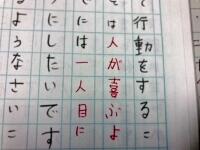 て行動をするこ
そは人が喜ぶよ
でには一人目に
にしたいです
るようなさいこ